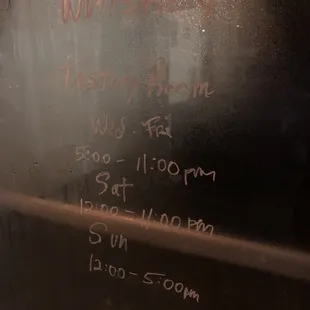 Room
Wed - Fri
5:00 - 11:00 pm
Sat
12:00 - 11:00 pm
Sun
12:00 - 5:00pm